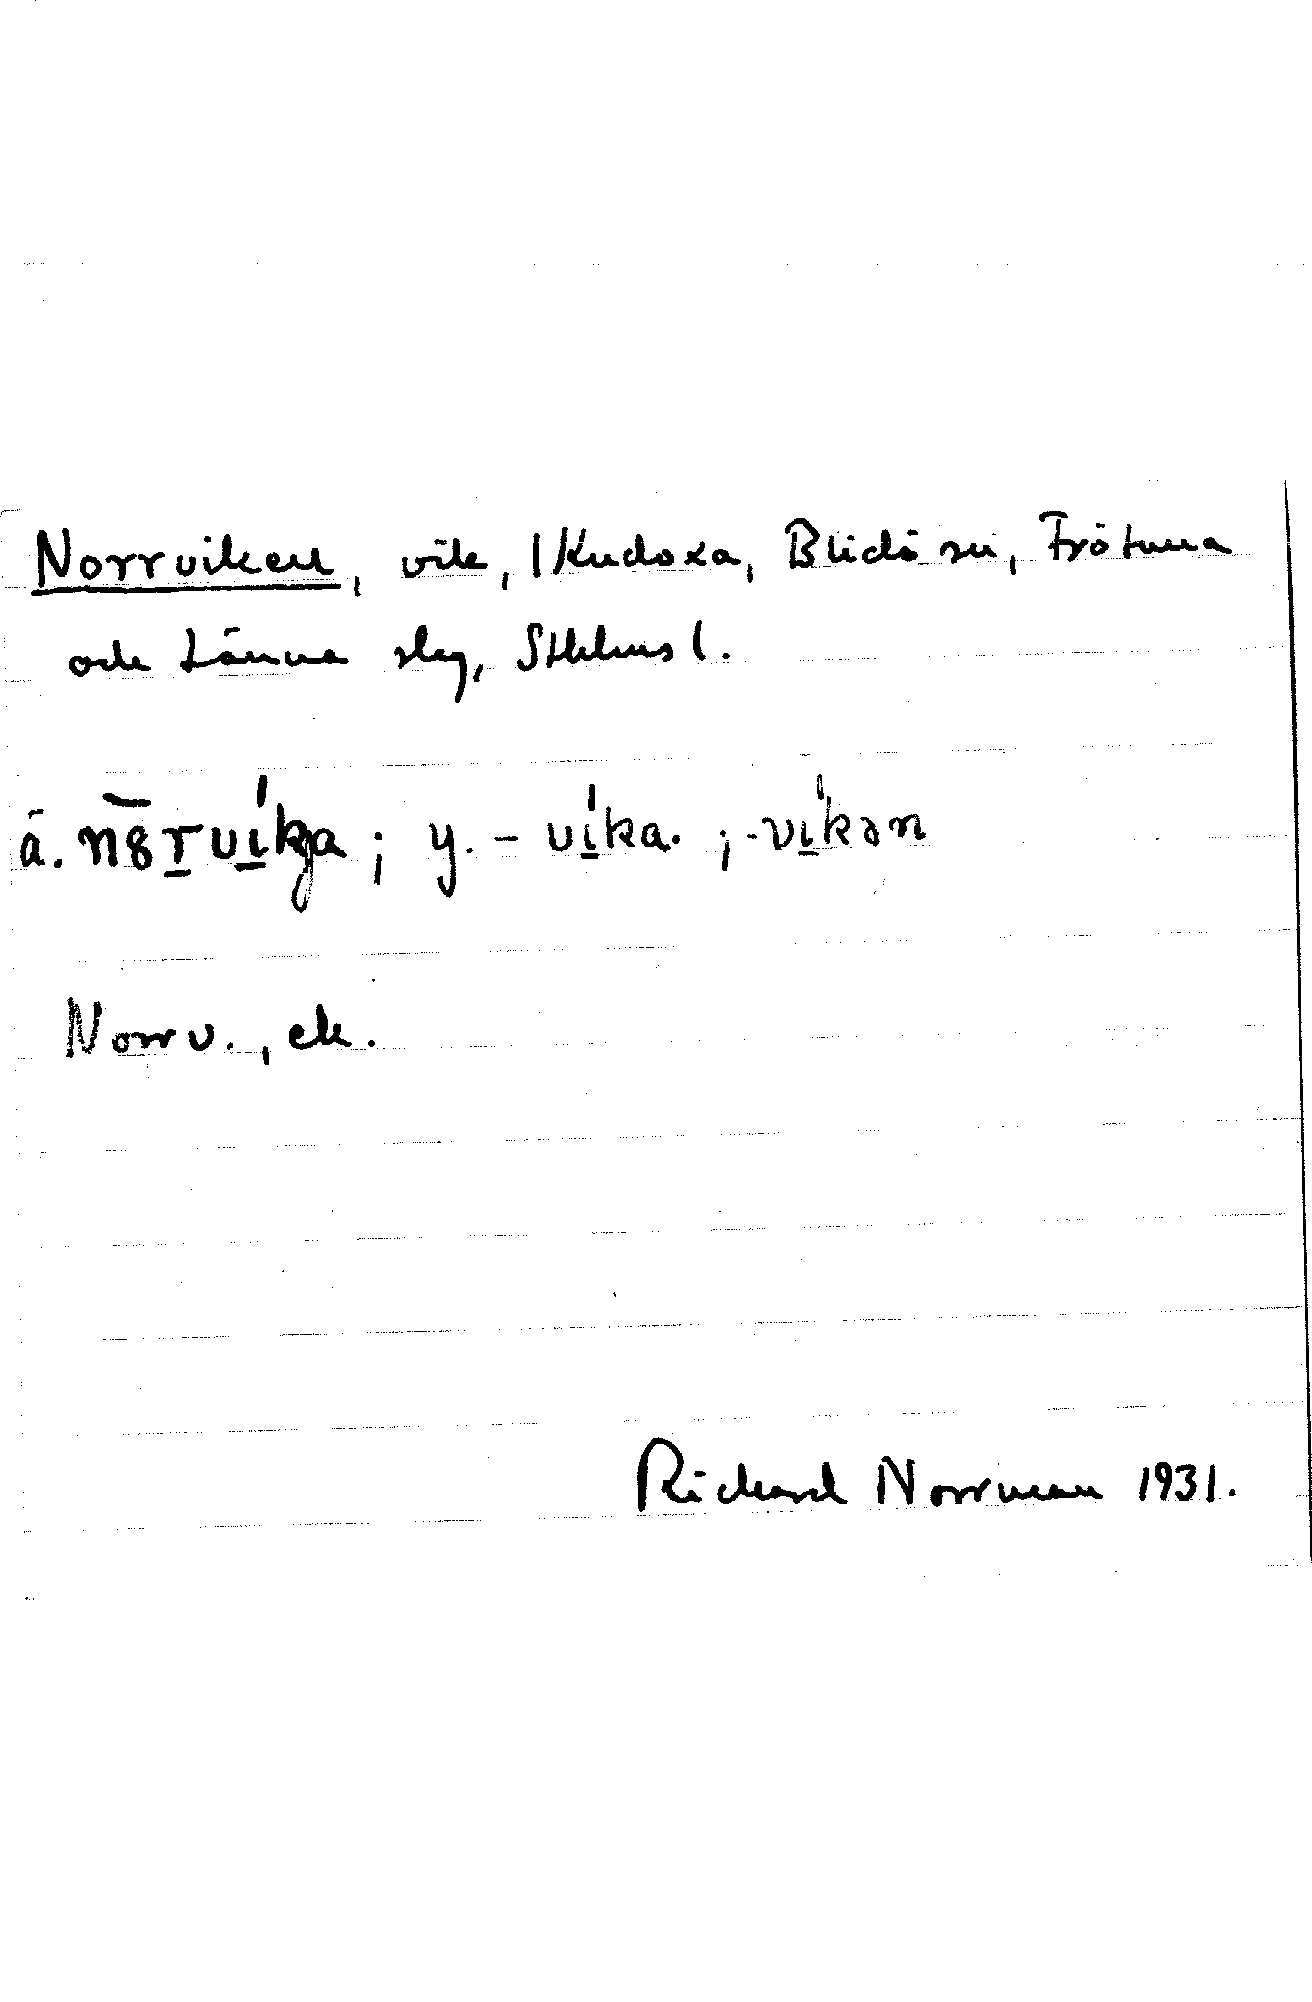 Norrviken, vik, I Kudoxa, Blidö sn, Frötuna
och Länna slag, Sthlms l.
ä. n8rvika ; y. - vika. ; -vikən
Norrv., ek.
Rickard Norrman 1931.